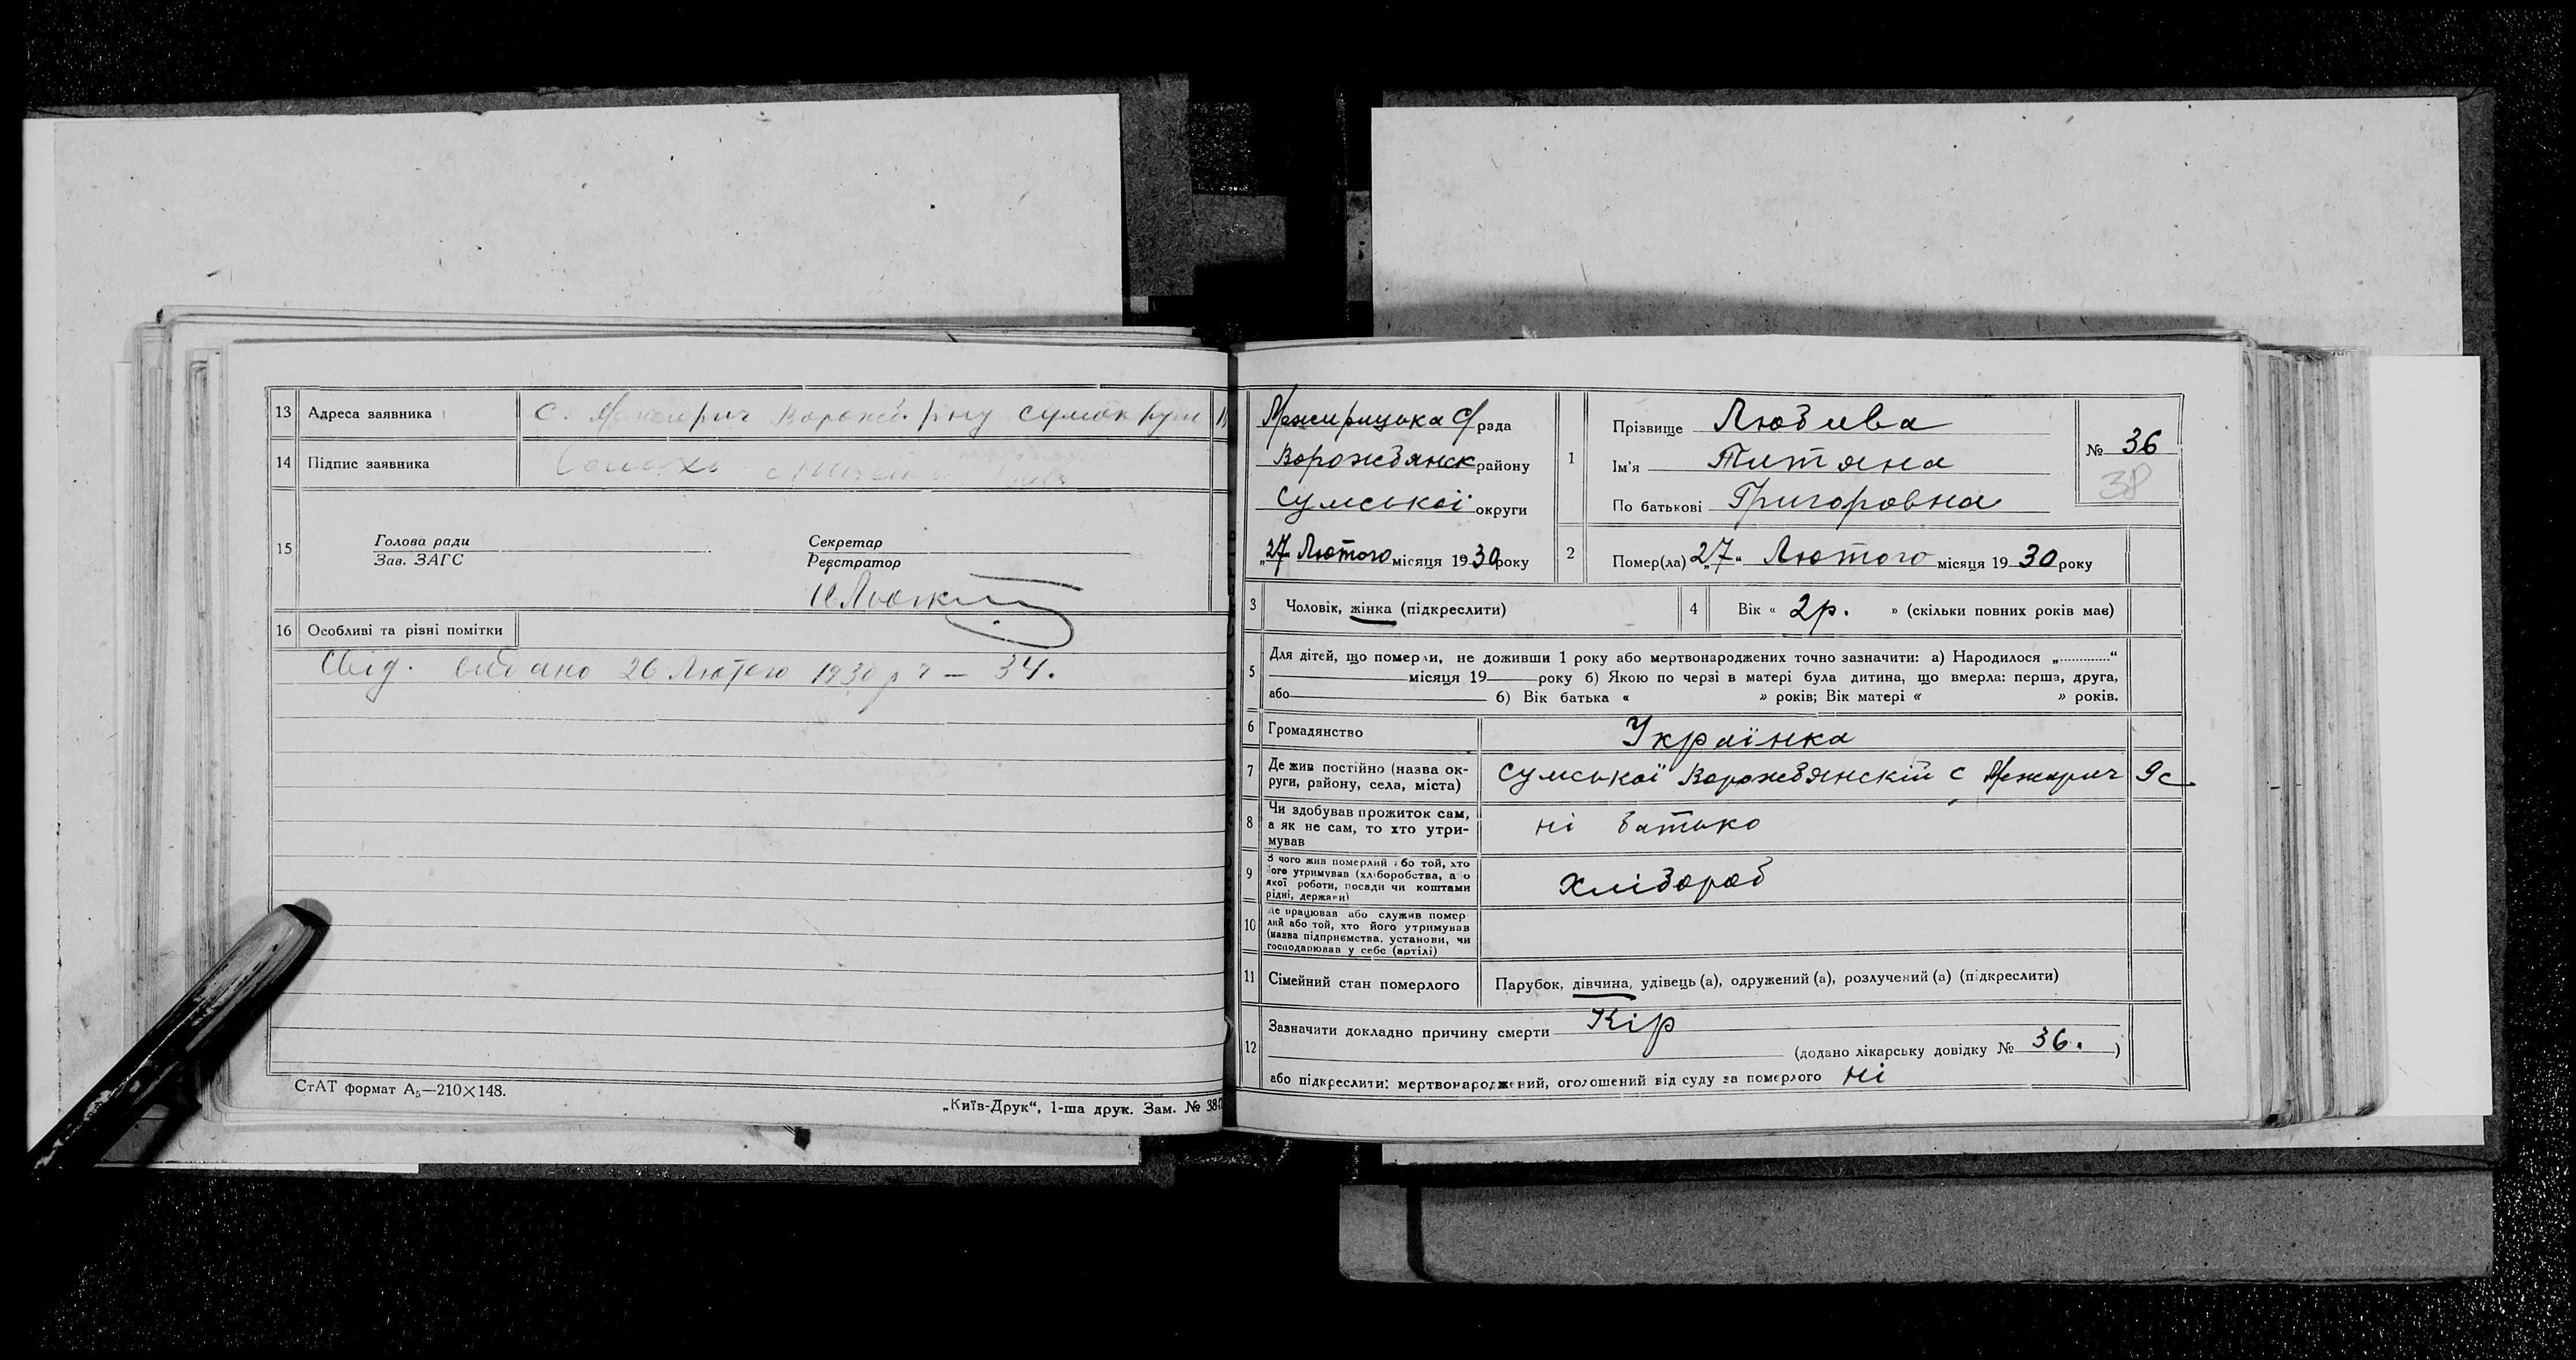 13 Адреса заявника с. Межирич Ворожб. р-ну сумок
14 Підпис заявника
15 Голова ради Секретар
Зав. ЗАГС Реєстратор
16 Особливі та різні помітки
Свід. видано 26 Лютого 1930 р ч — 34.
СтАТ формат А₅—210×148.
„Київ-Друк“, 1-ша друк. Зам. №
Межирицька С/рада
Ворожбянск району
Сумської округи
„27“ Лютого місяця 1930 року
1 Прізвище Любива
Ім'я Титяна
По батькові Григоровна
№ 36
38
2 Помер(ла) „27“ Лютого місяця 1930 року
3 Чоловік, жінка (підкреслити) 4 Вік « 2р. » (скільки повних років має)
5 Для дітей, що померли, не доживши 1 року або мертвонароджених точно зазначити: а) Народилося „............“
місяця 19 року б) Якою по черзі в матері була дитина, що вмерла: перша, друга,
або 6) Вік батька « » років; Вік матері « » років.
6 Громадянство Українка
7 Де жив постійно (назва ок-
руги, району, села, міста) Сумської Ворожбянскій с Межирич 9с
8 Чи здобував прожиток сам,
а як не сам, то хто утри-
мував ні батько
9 З чого жив померлий або той, хто
його утримував (хліборобства, або
якої роботи, посади чи коштами
рідні, держави) Хлібороб
10 Де працював або служив помер-
лий або той, хто його утримував
(назва підприємства, установи, чи
господарював у себе (артілі)
11 Сімейний стан померлого Парубок, дівчина, удівець (а), одружений (а), розлучений (а) (підкреслити)
12 Зазначити докладно причину смерти Кір
(додано лікарську довідку № 36. )
або підкреслити: мертвонароджений, оголошений від суду за померлого ні